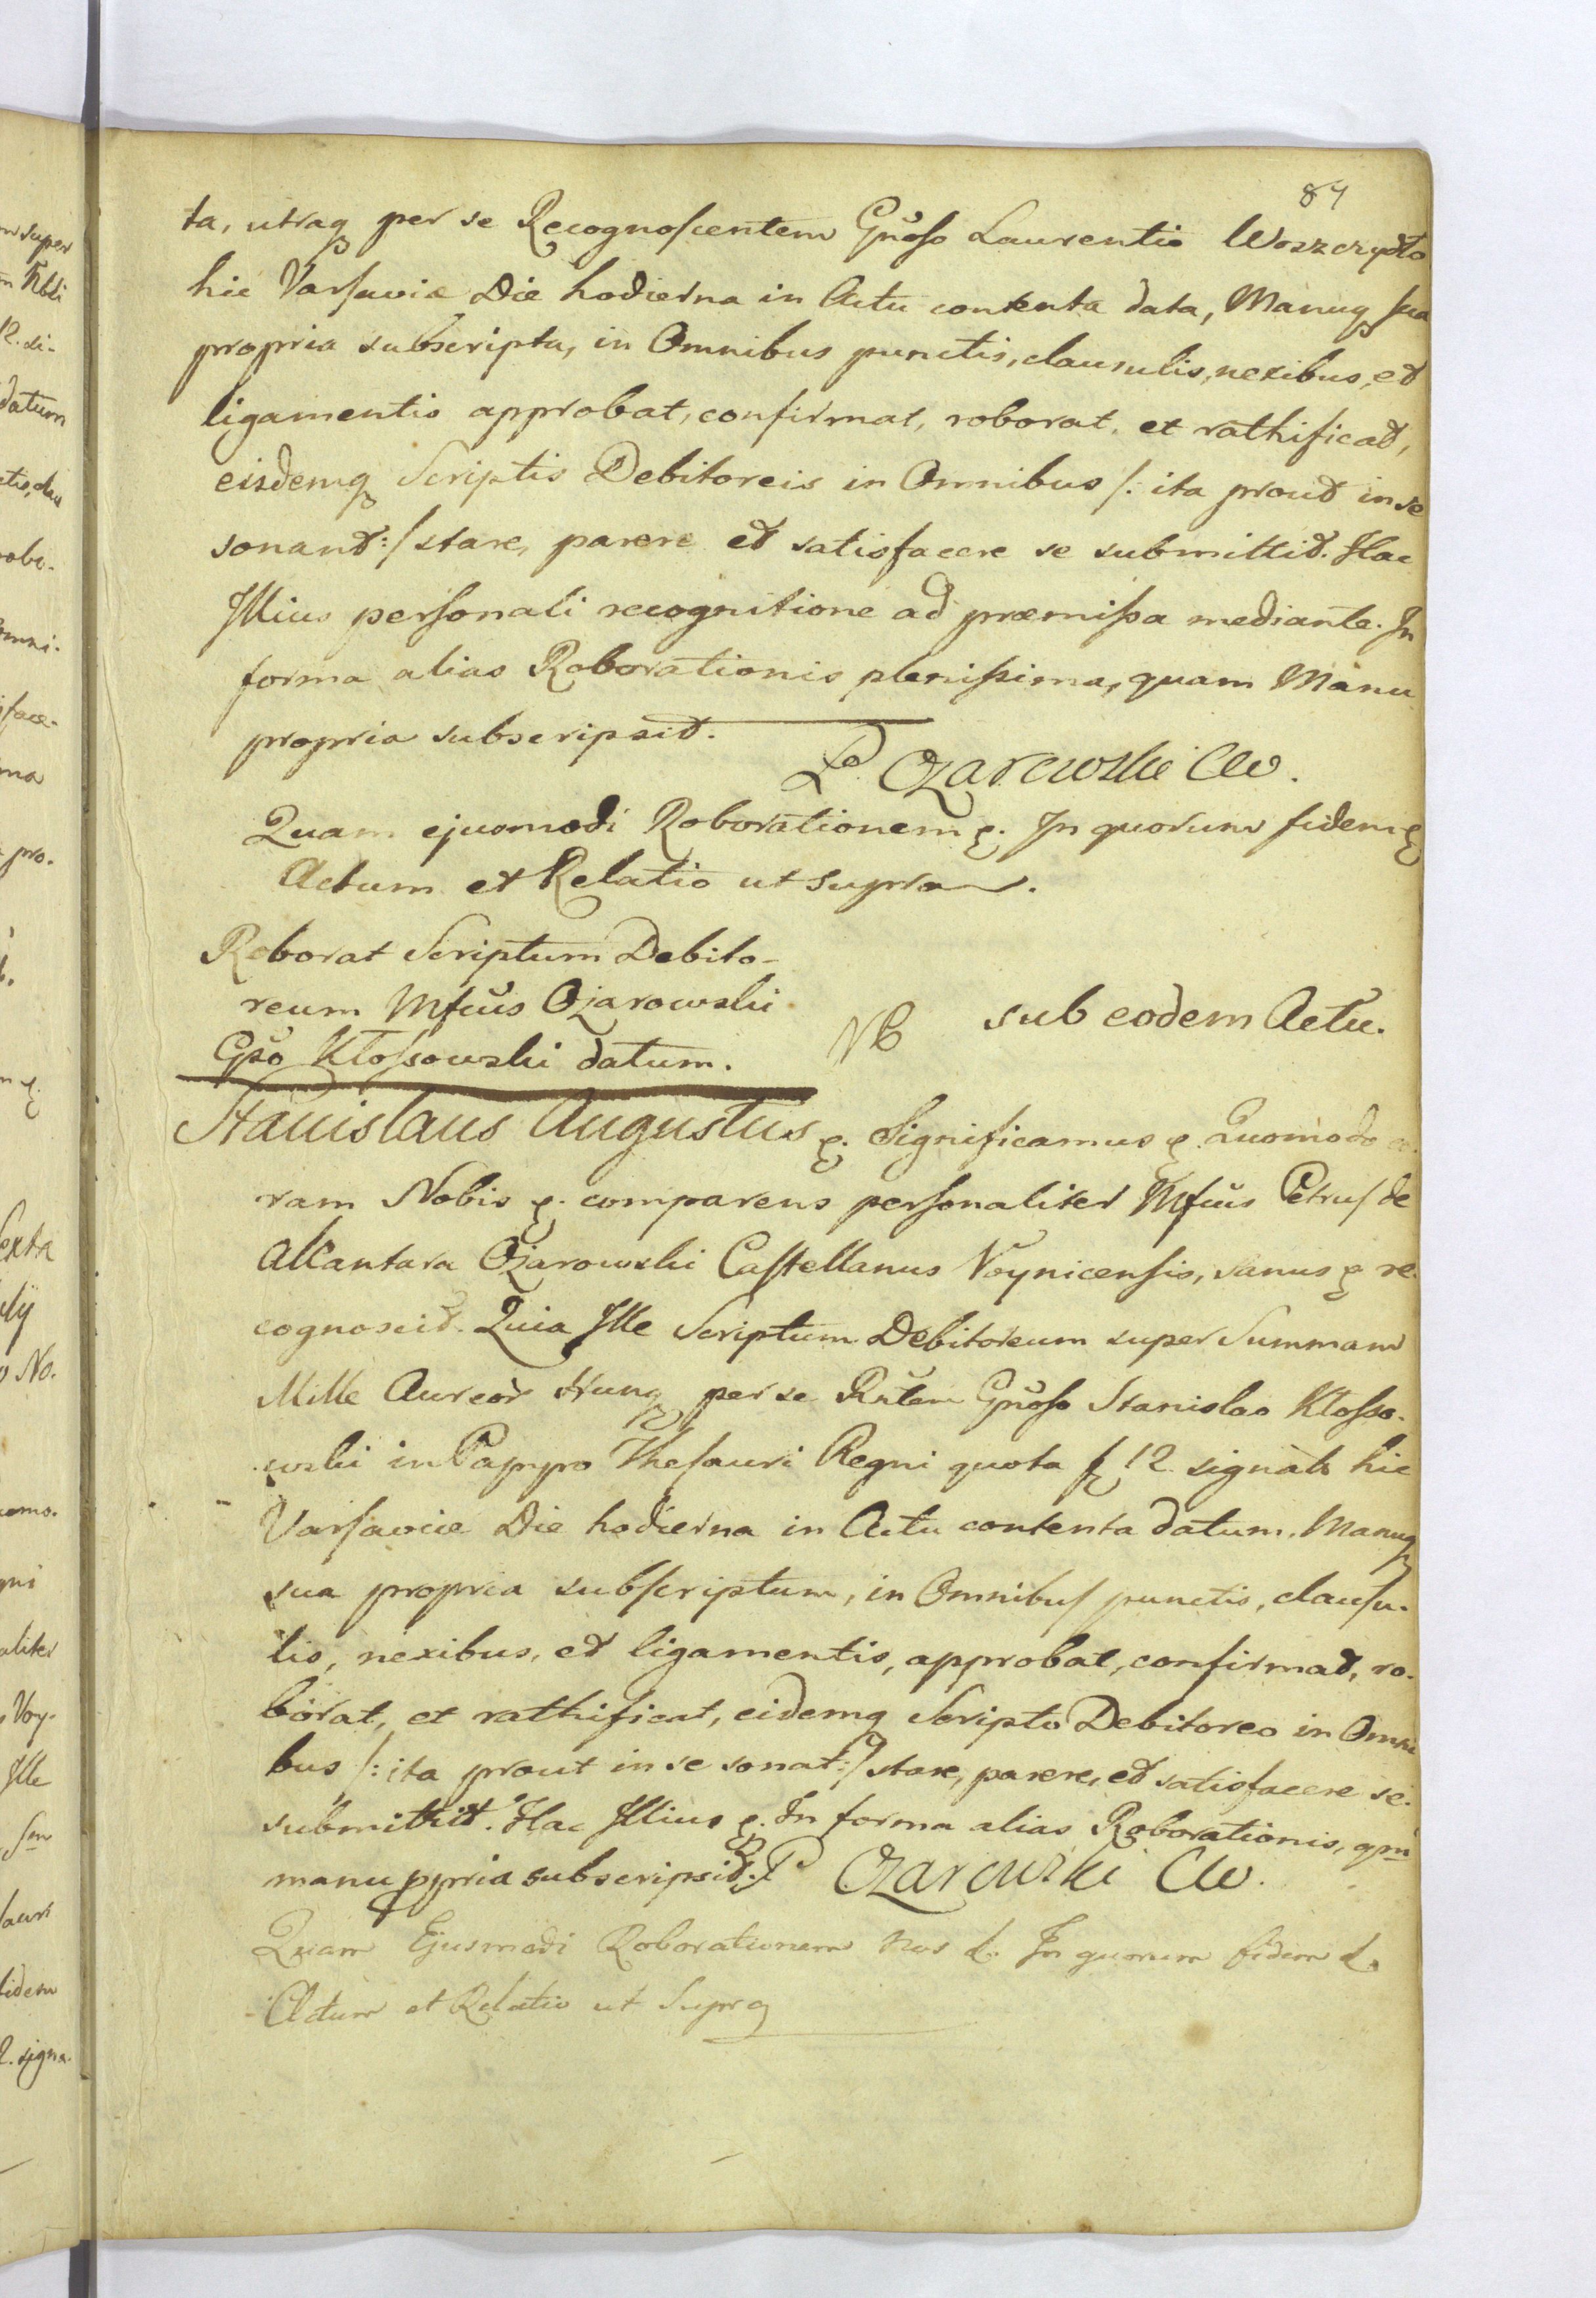 84
ta, utraq per se Recognoscentem Gnoso Laurentio Woszczydto
hic Varsaviæ Die hodierna in Actu contenta data, Manuq sua
propria subscripta, in Omnibus punctis, clausulis, nexibus, et
ligamentis approbat, confirmat, roborat, et rathificat,
eisdemq Scriptis Debitoreis in Omnibus /: ita prout in se
sonant :/ stare, parere et satisfacere se submittit. Hac
Illius personali recognitione ad præmissa mediante. In
forma alias Roborationis plenissima, quam Manu
propria subscripsit.
P Ożarowski CW.
Quam ejusmodi Roborationem &. In quorum fidem &
Actum et Relatio ut supra.
Roborat Scriptum Debito-
reum Mfcus Ożarowski
Gso Kłossowski datum.
NB sub eodem Actu.
Stanislaus Augustus &. Significamus &. Quomodo co-
ram Nobis &. comparens personaliter Mfcus Petrus de
Alcantara Ożarowski Castellanus Voynicensis, sanus & re-
cognoscit. Quia Ille Scriptum Debitoreum super Summam
Mille Aureor Hung per se Rntem Gnoso Stanislao Kłosso-
wski in Papyro Thesauri Regni quota f 12 signato hic
Varsaviæ Die hodierna in Actu contenta datum, Manuq
sua propria subscriptum, in Omnibus punctis, clausu-
lis, nexibus, et ligamentis, approbat, confirmat, ro-
borat, et rathificat, eidemq Scripto Debitoreo in Omni
bus /: ita prout in se sonat :/ stare, parere, et satisfacere se
submittit. Hac Illius &. In forma alias Roborationis, qm
manu ppria subscripsit. P Ożarowski CW.
Quam Ejusmodi Roborationem Nos &. In quorum fidem &.
Actum et Relatio ut Supra